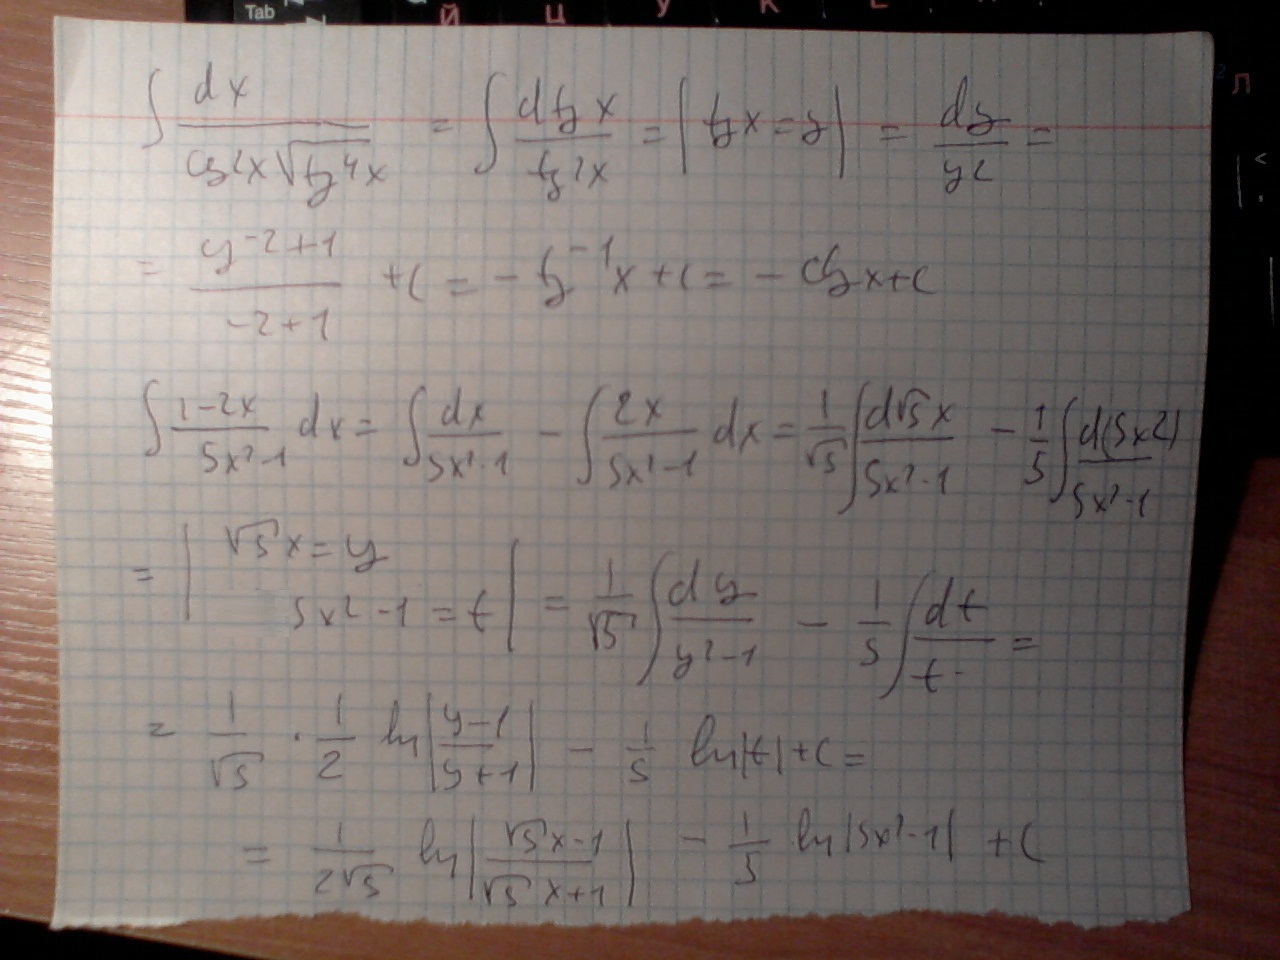 Tab Й Ц У К Е Н
Л
∫ dx / (cos²x √tg⁴x) = ∫ d tg x / tg²x = | tg x = y | = dy / y² =
= y^(-2+1) / (-2+1) + c = - tg⁻¹x + c = - ctg x + c
∫ (1-2x)/(5x²-1) dx = ∫ dx/(5x²-1) - ∫ 2x/(5x²-1) dx = 1/√5 ∫ d√5x/(5x²-1) - 1/5 ∫ d(5x²)/(5x²-1)
= | √5x = y 5x²-1 = t | = 1/√5 ∫ dy/(y²-1) - 1/5 ∫ dt/t =
= 1/√5 · 1/2 ln|(y-1)/(y+1)| - 1/5 ln|t| + c =
= 1/(2√5) ln|(√5x-1)/(√5x+1)| - 1/5 ln|5x²-1| + c